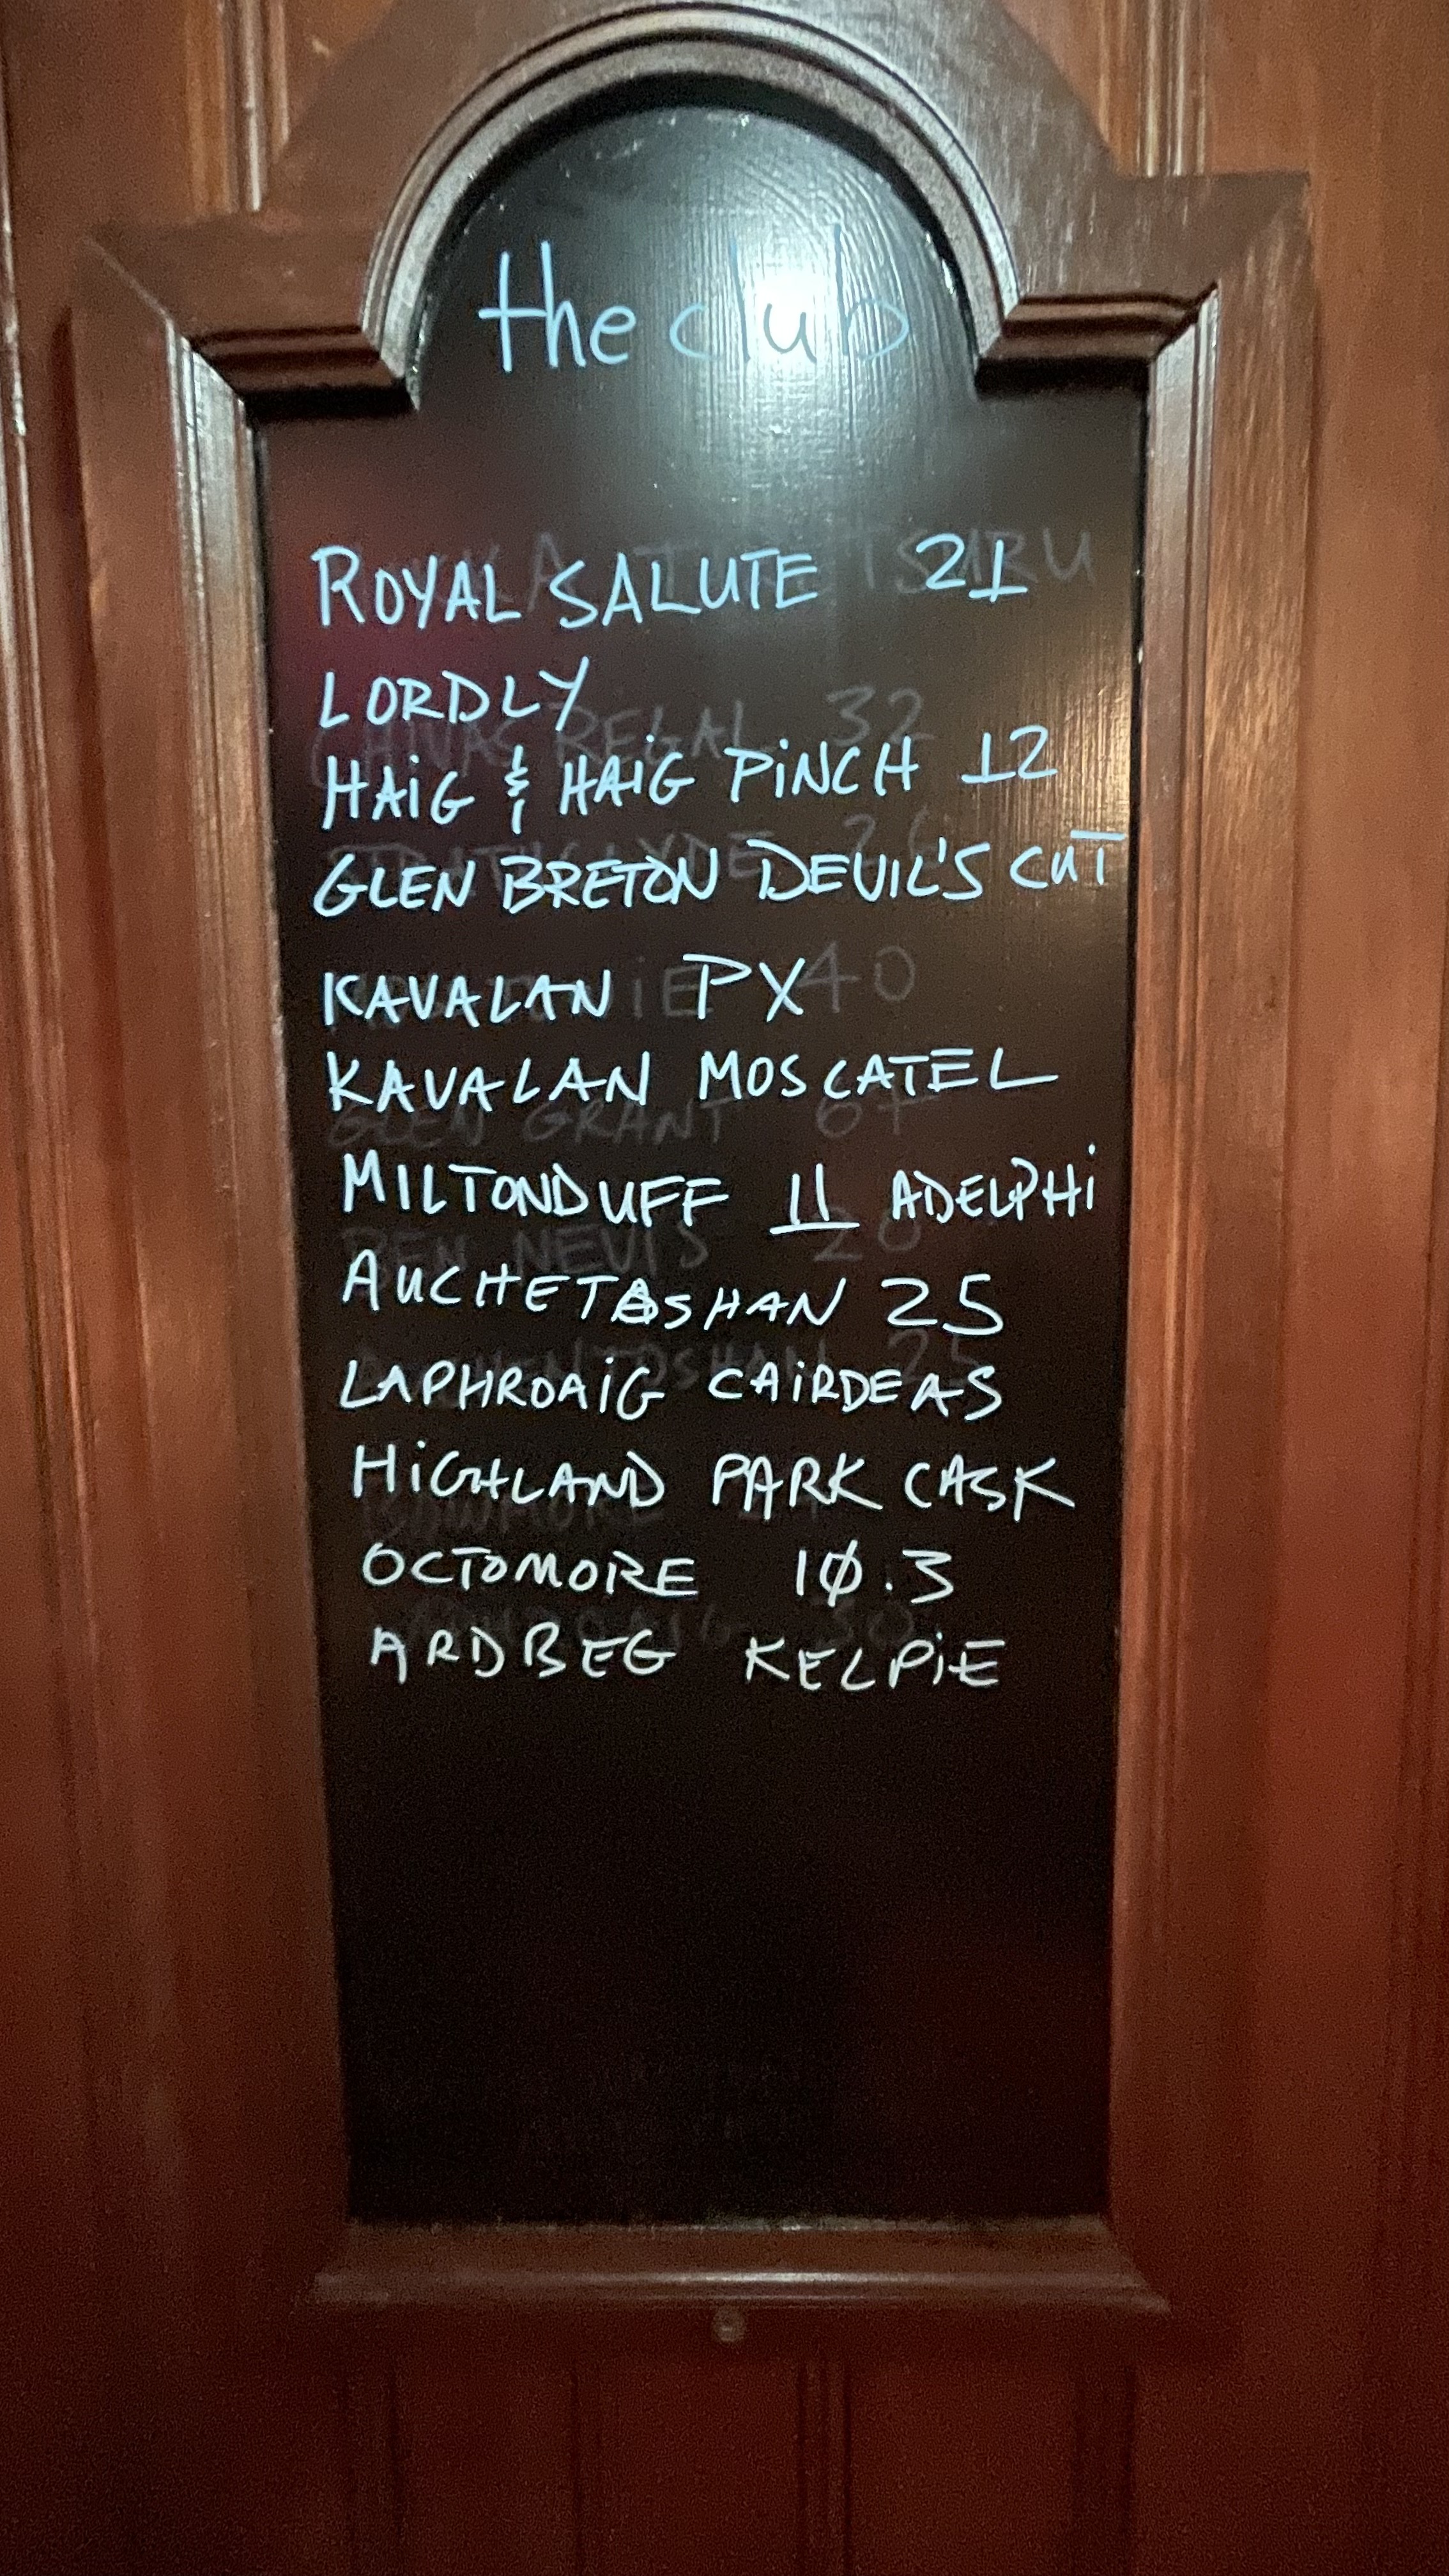 the club
ROYAL SALUTE 21
LORDLY
HAiG & HAiG PiNCH 12
GLEN BRETON DEVIL'S CUT
KAVALAN PX
KAVALAN MOSCATEL
MILTONDUFF 11 ADELPHi
AUCHETOSHAN 25
LAPHROAiG CAiRDEAS
HiGHLAND PARK CASK
OCTOMORE 10.3
ARDBEG KELPiE